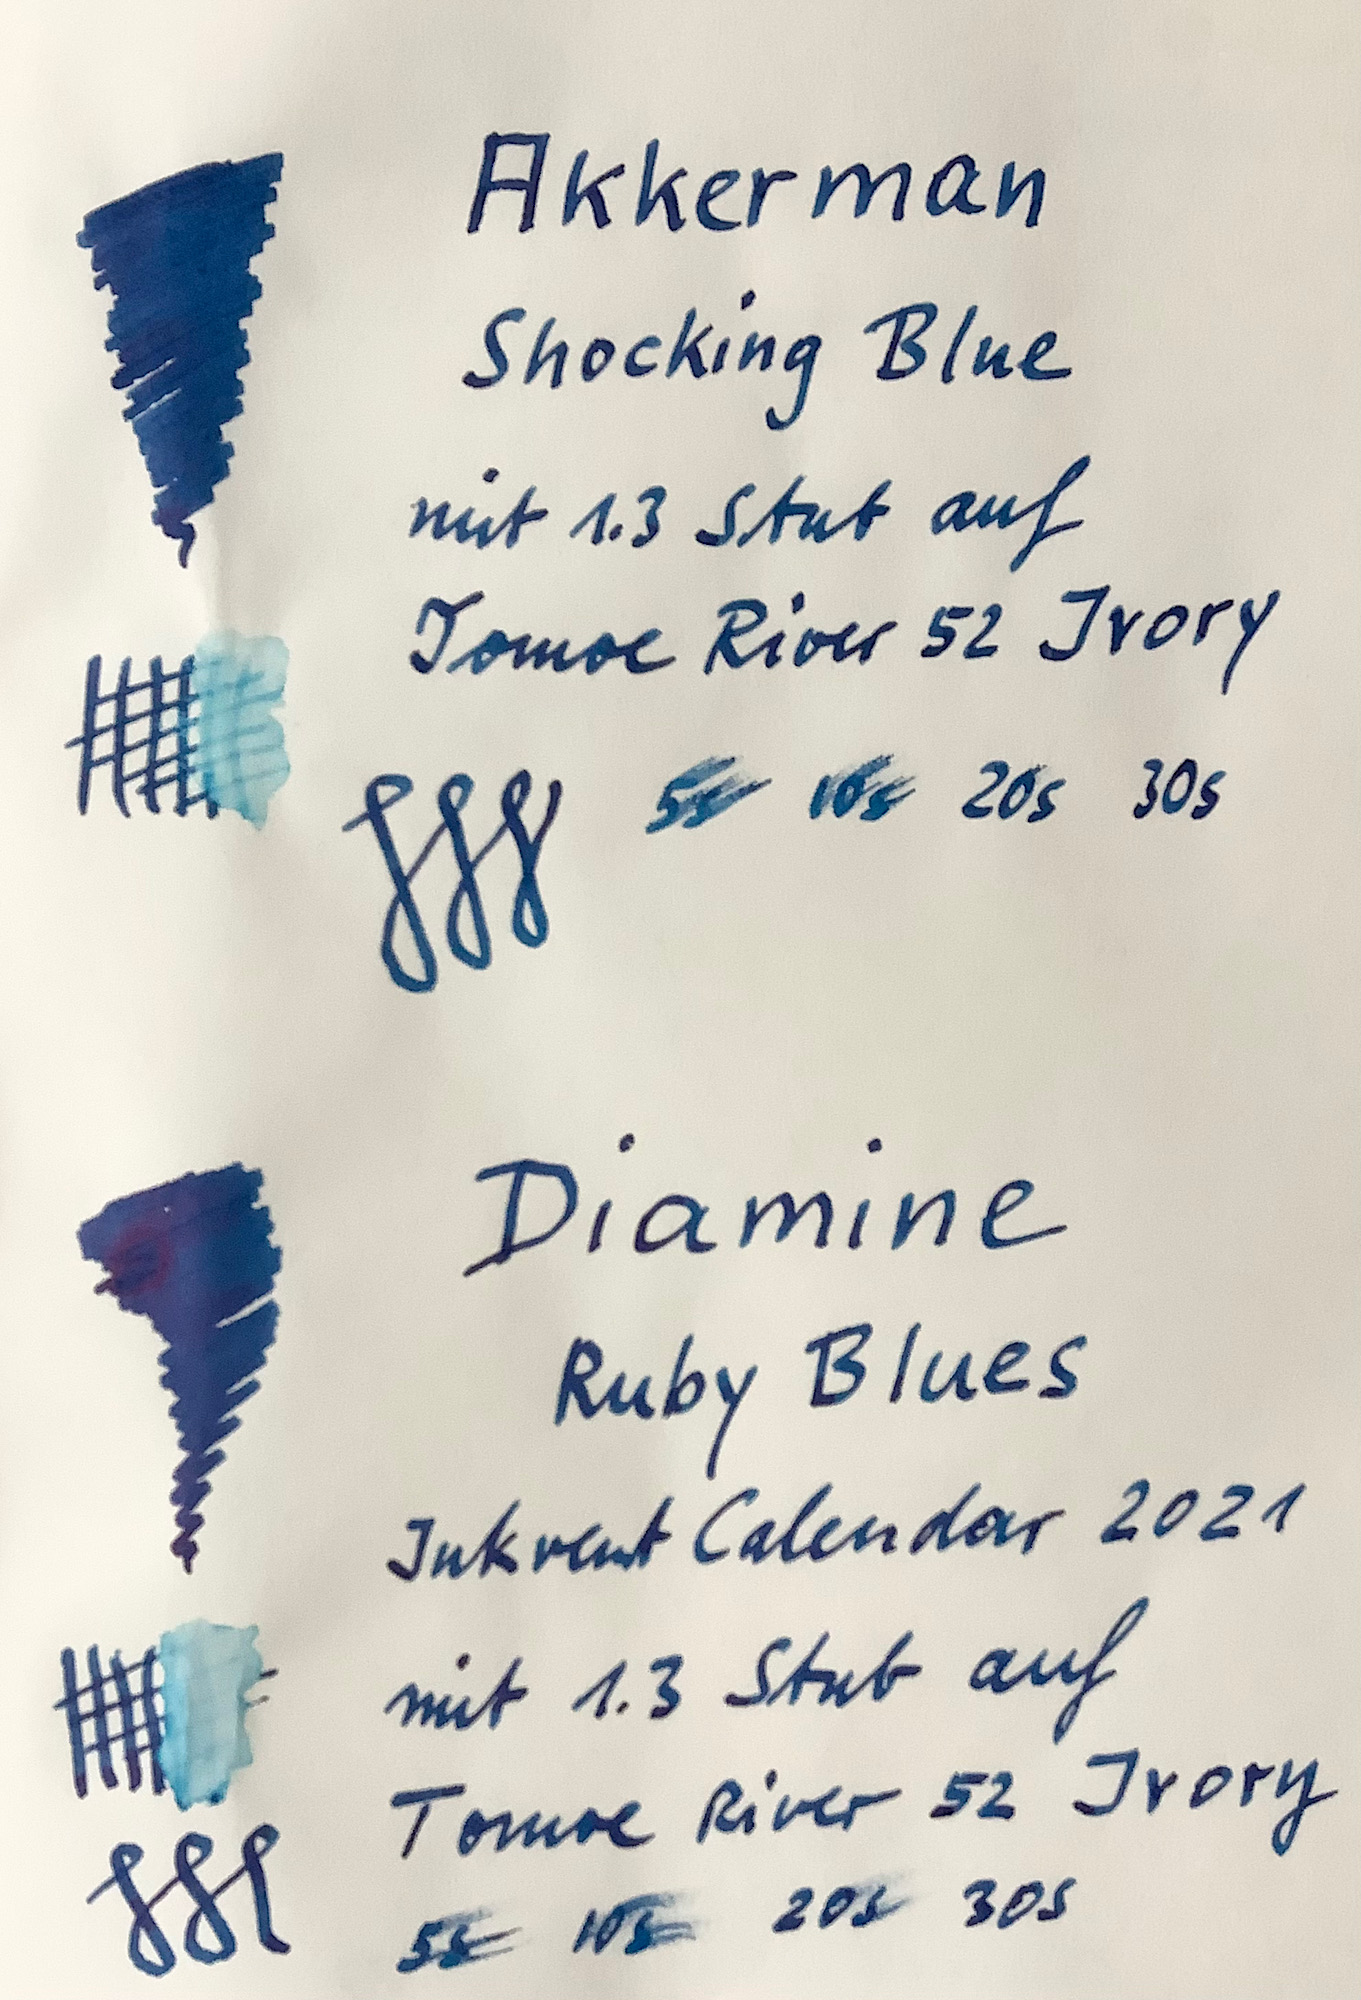 Akkerman
Shocking Blue
mit 1.3 Stub auf
Tomoe River 52 Ivory
5s 10s 20s 30s
Diamine
Ruby Blues
Inkvent Calendar 2021
mit 1.3 Stub auf
Tomoe River 52 Ivory
5s 10s 20s 30s